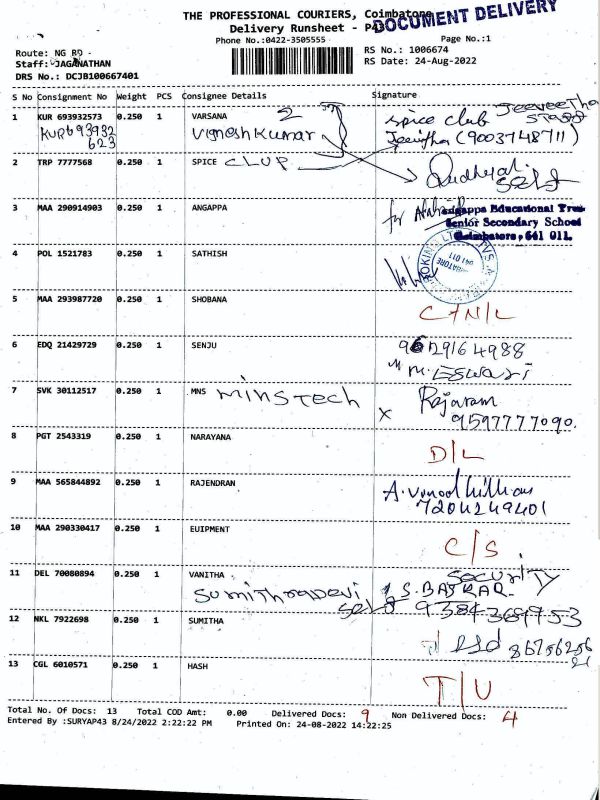 THE PROFESSIONAL COURIERS, Coimbatore
DOCUMENT DELIVERY
Delivery Runsheet - P43
Phone No.:0422-3505555
Page No.:1
Route: NG RD -
RS No.: 1006674
Staff: JAGANATHAN
RS Date: 24-Aug-2022
DRS No.: DCJB100667401
S No Consignment No Weight PCS Consignee Details Signature
1 KUR 693932573 0.250 1 VARSANA 2 spice club Jeeveetha staff
KUR693932 623 Vignesh Kumar Jeevitha (9003748711)
2 TRP 7777568 0.250 1 SPICE CLUP self
3 MAA 290914903 0.250 1 ANGAPPA for Angappa Educational Trust
Senior Secondary School
Coimbatore, 641 011.
4 POL 1521783 0.250 1 SATHISH
641 011
5 MAA 293987720 0.250 1 SHOBANA C/N/L
6 EDQ 21429729 0.250 1 SENJU 9629164988
M. Eswari
7 SVK 30112517 0.250 1 MNS minstech x Rajaram
9597777090.
8 PGT 2543319 0.250 1 NARAYANA D/L
9 MAA 565844892 0.250 1 RAJENDRAN
7204249401
10 MAA 290330417 0.250 1 EUIPMENT C/S
11 DEL 70080894 0.250 1 VANITHA Security
Sumithradevi self S. BASKAR
9384369953
12 NKL 7922698 0.250 1 SUMITHA
13 CGL 6010571 0.250 1 HASH T/U
Total No. Of Docs: 13 Total COD Amt: 0.00 Delivered Docs: 9 Non Delivered Docs: 4
Entered By :SURYAP43 8/24/2022 2:22:22 PM Printed On: 24-08-2022 14:22:25